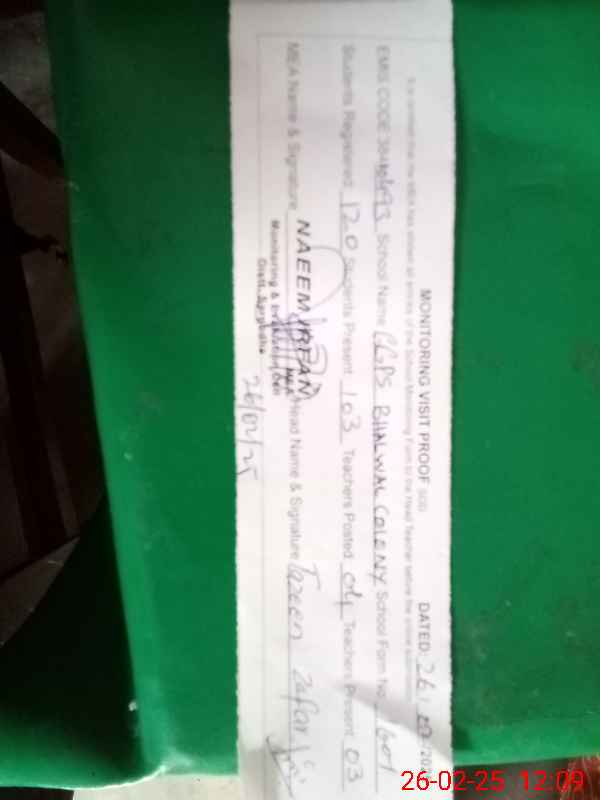 MONITORING VISIT PROOF (SED) DATED: 26/02/202
It is certified that the MEA has shown all entries of the School Monitoring Form to the Head Teacher before the online submission
EMIS CODE 384 93 School Name GGPS BHALWAL COLONY School Form No. 601
Students Registered 120 Students Present 103 Teachers Posted 04 Teachers Present 03
MEA Name & Signature NAEEM IRFAN Head Name & Signature Tazeen Zafar
MEA
Monitoring &
Distt. Sargodha
26/02/25
26-02-25 12:09